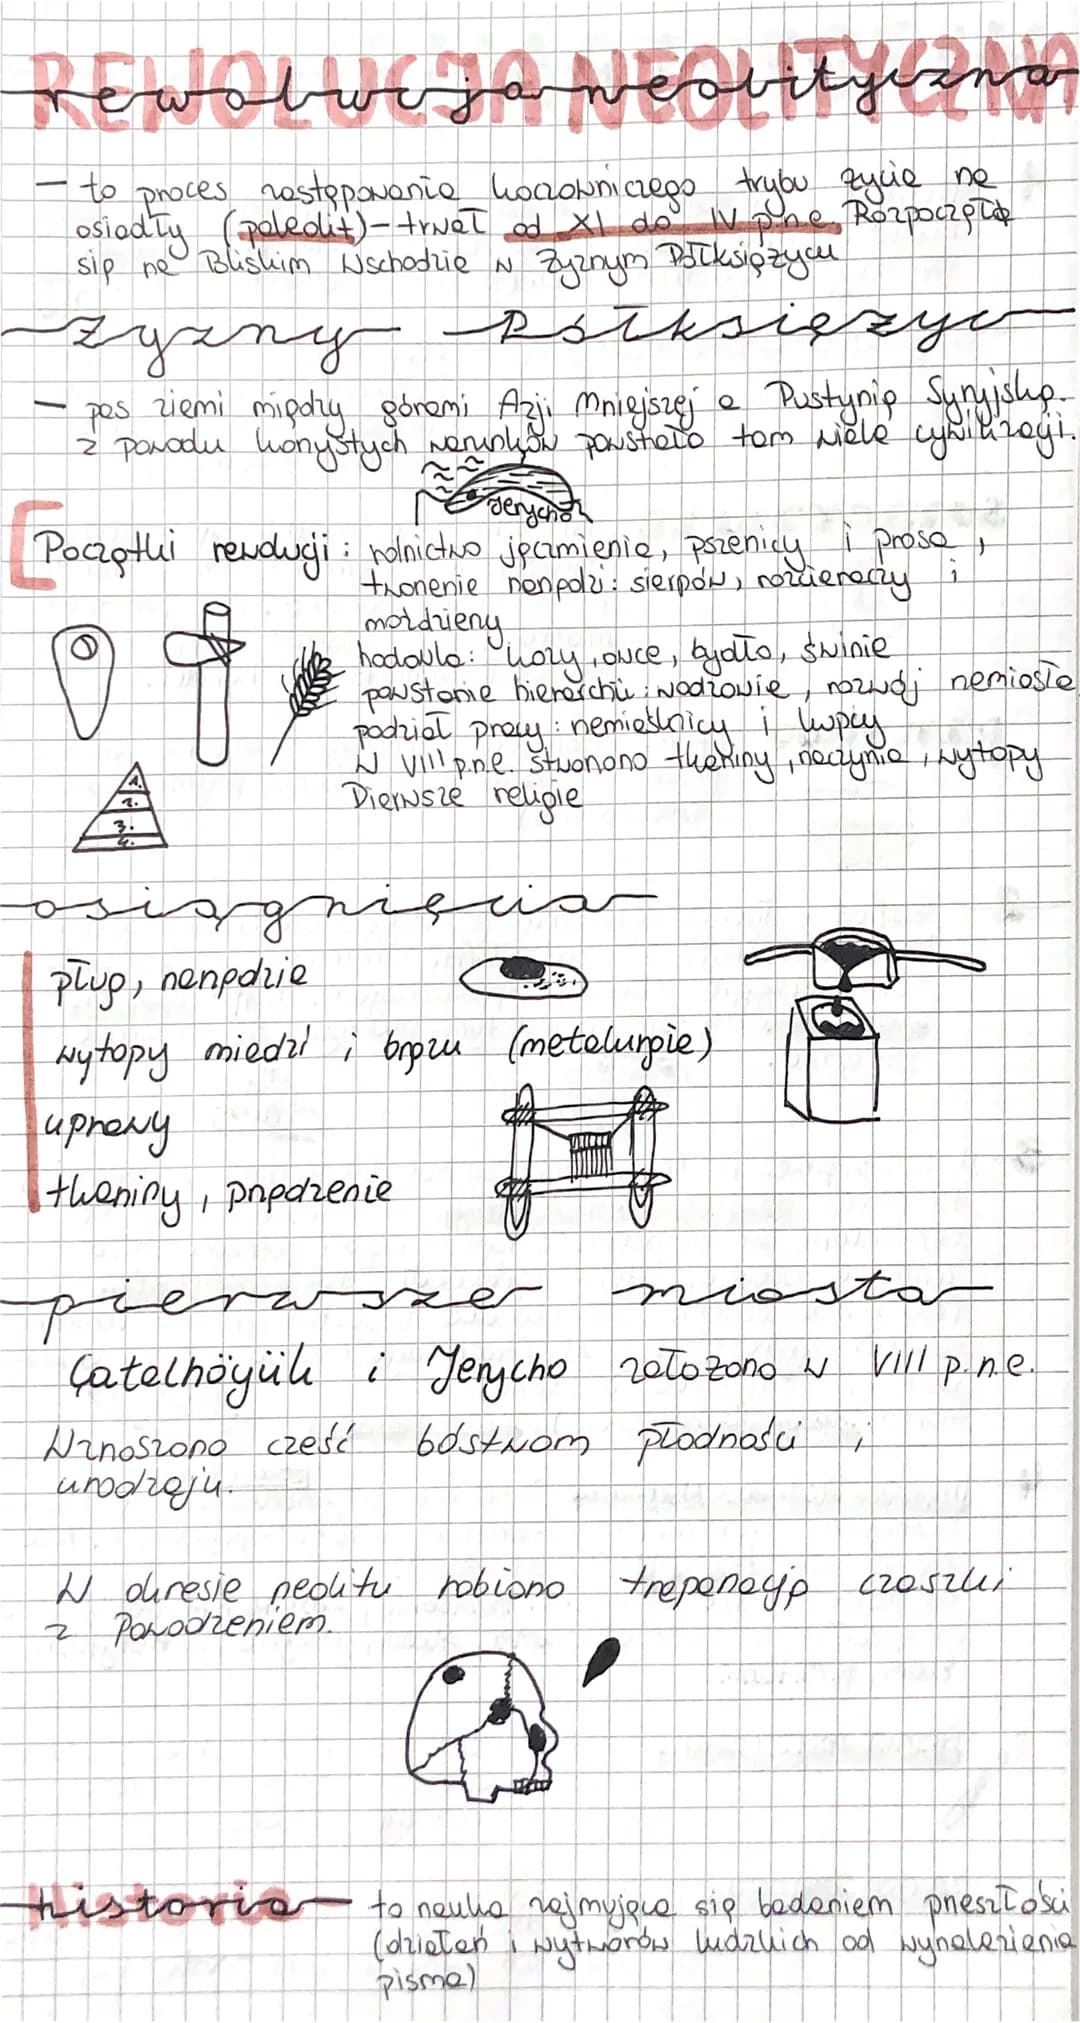 REWOLUCJA NEOLITYCZNA
rewolucja neolityczna
– to proces zastępowania koczowniczego trybu życia na
osiadły (paleolit) – trwał od XI do IV p.n.e. Rozpoczęła
się na Bliskim Wschodzie w Żyznym Półksiężycu
żyzny Półksiężyc
– pas ziemi między górami Azji Mniejszej a Pustynią Syryjską.
z powodu korzystych warunków powstało tam wiele cywilizacji.
Jerycho
Początki rewolucji: rolnictwo jęczmienia, pszenicy i prosa,
tworzenie narzędzi: sierpów, rozcieraczy i
moździerzy
hodowla: kozy, owce, bydło, świnie
powstanie hierarchii: wodzowie, rozwój rzemiosła
podział pracy: rzemieślnicy i kupcy
w VIII p.n.e. stworzono tkaniny, naczynia, wytopy
Pierwsze religie
1.
2.
3.
4.
osiągnięcia
pług, narzędzia
wytopy miedzi i brązu (metalurgia)
uprawy
tkaniny, przędzenie
pierwsze miasta
Çatalhöyük i Jerycho założono w VIII p.n.e.
Wznoszono cześć bóstwom płodności i
urodzaju.
W okresie neolitu robiono trepanację czaszki
z Powodzeniem.
Historia
historia – to nauka zajmująca się badaniem przeszłości
(działań i wytworów ludzkich od wynalezienia
pisma)